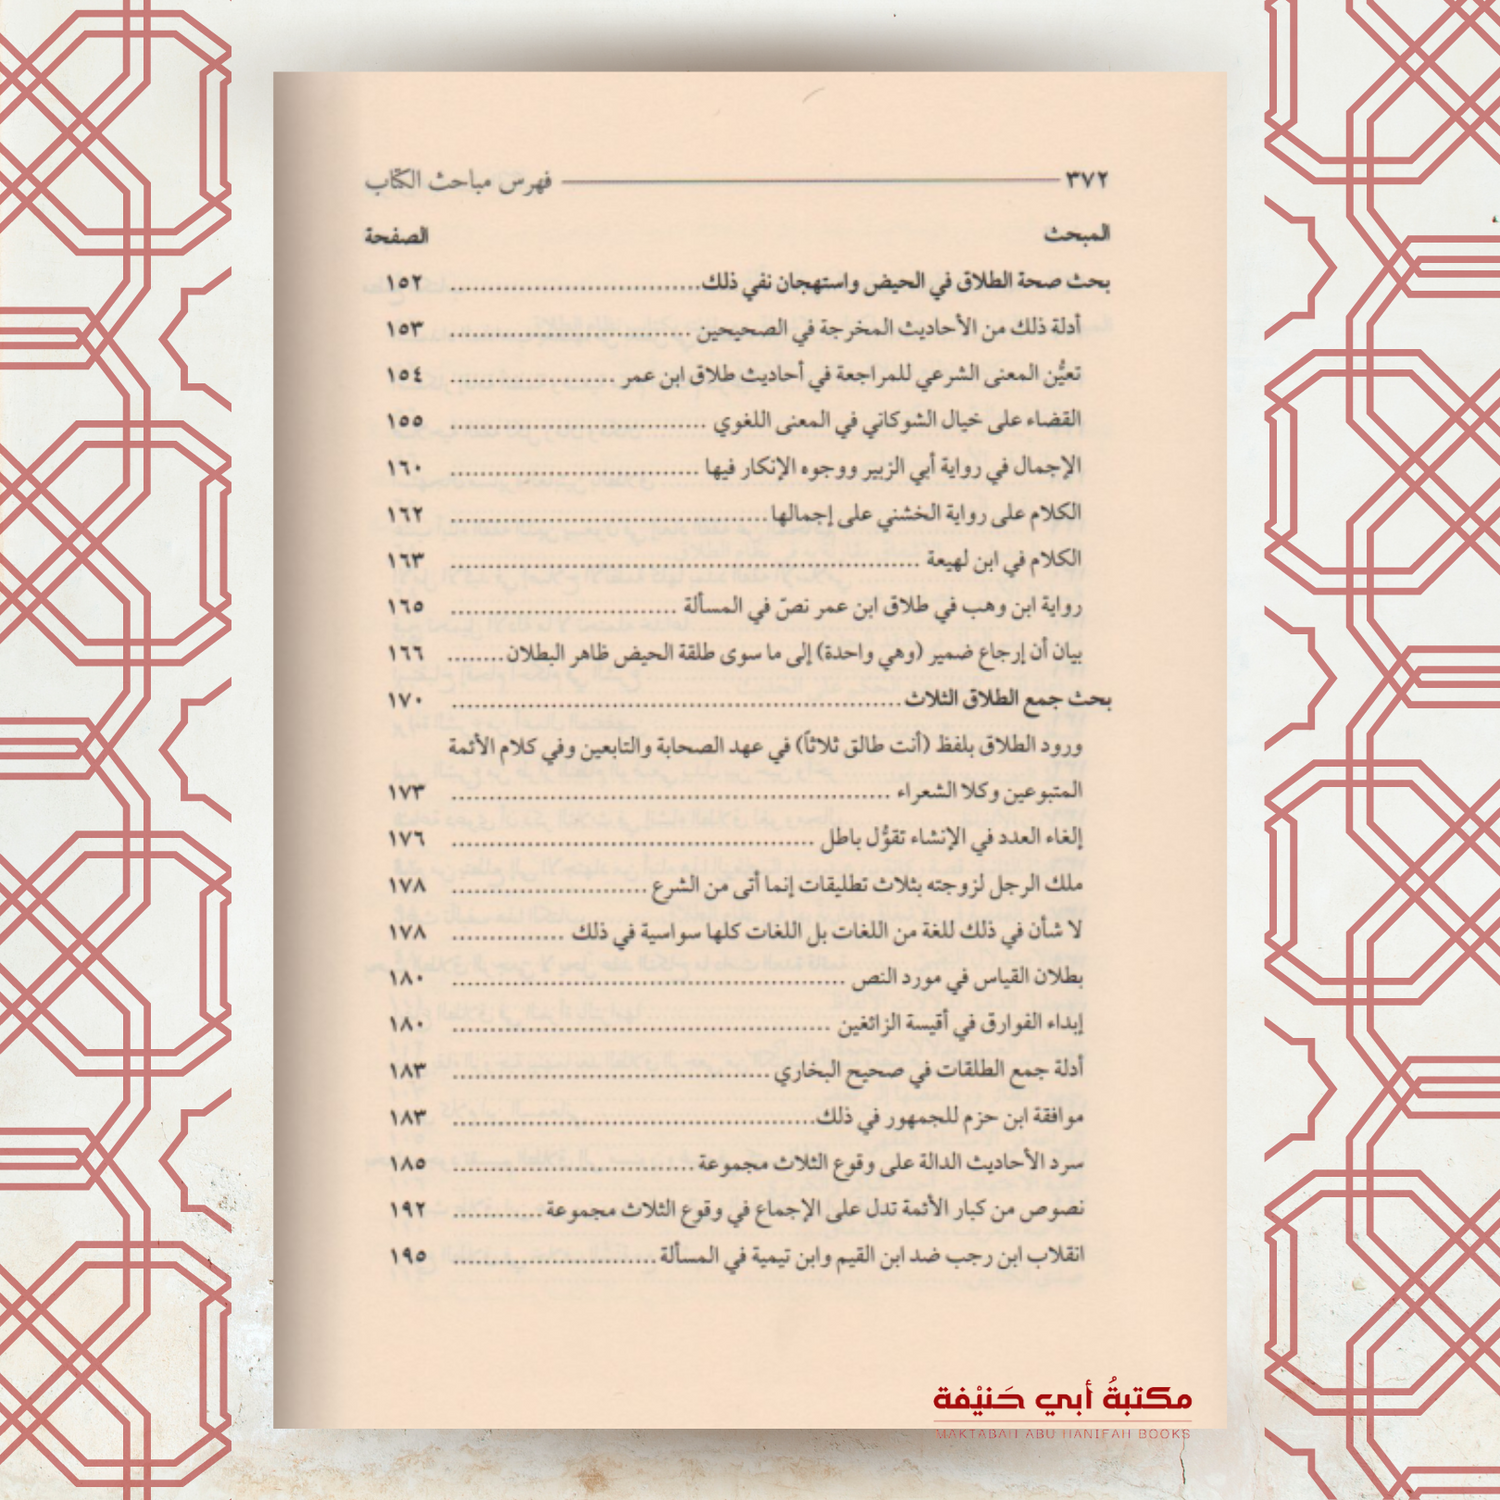 ٣٧٢ فهرس مباحث الكتاب
المبحث الصفحة
بحث صحة الطلاق في الحيض واستهجان نفي ذلك ................................ ١٥٢
أدلة ذلك من الأحاديث المخرجة في الصحيحين ................................ ١٥٣
تعيُّن المعنى الشرعي للمراجعة في أحاديث طلاق ابن عمر ...................... ١٥٤
القضاء على خيال الشوكاني في المعنى اللغوي ................................. ١٥٥
الإجمال في رواية أبي الزبير ووجوه الإنكار فيها ................................ ١٦٠
الكلام على رواية الخشني على إجمالها ......................................... ١٦٢
الكلام في ابن لهيعة ............................................................. ١٦٣
رواية ابن وهب في طلاق ابن عمر نصّ في المسألة .............................. ١٦٥
بيان أن إرجاع ضمير (وهي واحدة) إلى ما سوى طلقة الحيض ظاهر البطلان ........ ١٦٦
بحث جمع الطلاق الثلاث .......................................................... ١٧٠
ورود الطلاق بلفظ (أنت طالق ثلاثاً) في عهد الصحابة والتابعين وفي كلام الأئمة
المتبوعين وكلا الشعراء ......................................................... ١٧٣
إلغاء العدد في الإنشاء تقوُّل باطل ................................................ ١٧٦
ملك الرجل لزوجته بثلاث تطليقات إنما أتى من الشرع ......................... ١٧٨
لا شأن في ذلك للغة من اللغات بل اللغات كلها سواسية في ذلك ............... ١٧٨
بطلان القياس في مورد النص ................................................... ١٨٠
إبداء الفوارق في أقيسة الزائغين ................................................. ١٨٠
أدلة جمع الطلقات في صحيح البخاري ......................................... ١٨٣
موافقة ابن حزم للجمهور في ذلك ............................................... ١٨٣
سرد الأحاديث الدالة على وقوع الثلاث مجموعة ............................... ١٨٥
نصوص من كبار الأئمة تدل على الإجماع في وقوع الثلاث مجموعة ............ ١٩٢
انقلاب ابن رجب ضد ابن القيم وابن تيمية في المسألة .......................... ١٩٥
مكتبةُ أبي حَنيْفة
MAKTABAH ABU HANIFAH BOOKS